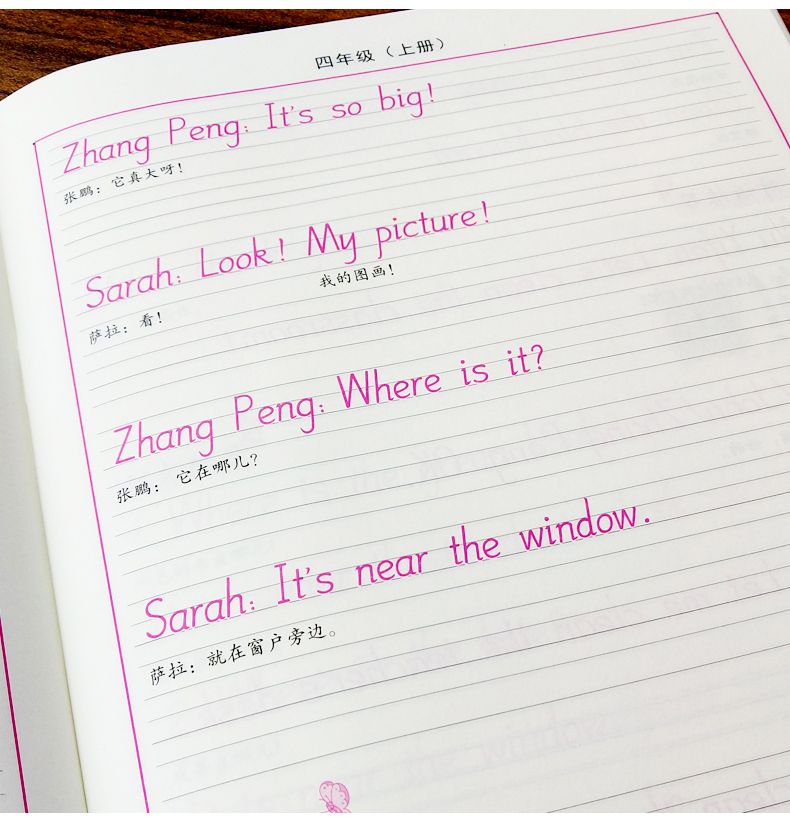 四年级（上册）
Zhang Peng: It's so big!
张鹏：它真大呀！
Sarah: Look! My picture!
萨拉：看！ 我的图画！
Zhang Peng: Where is it?
张鹏： 它在哪儿？
Sarah: It's near the window.
萨拉：就在窗户旁边。